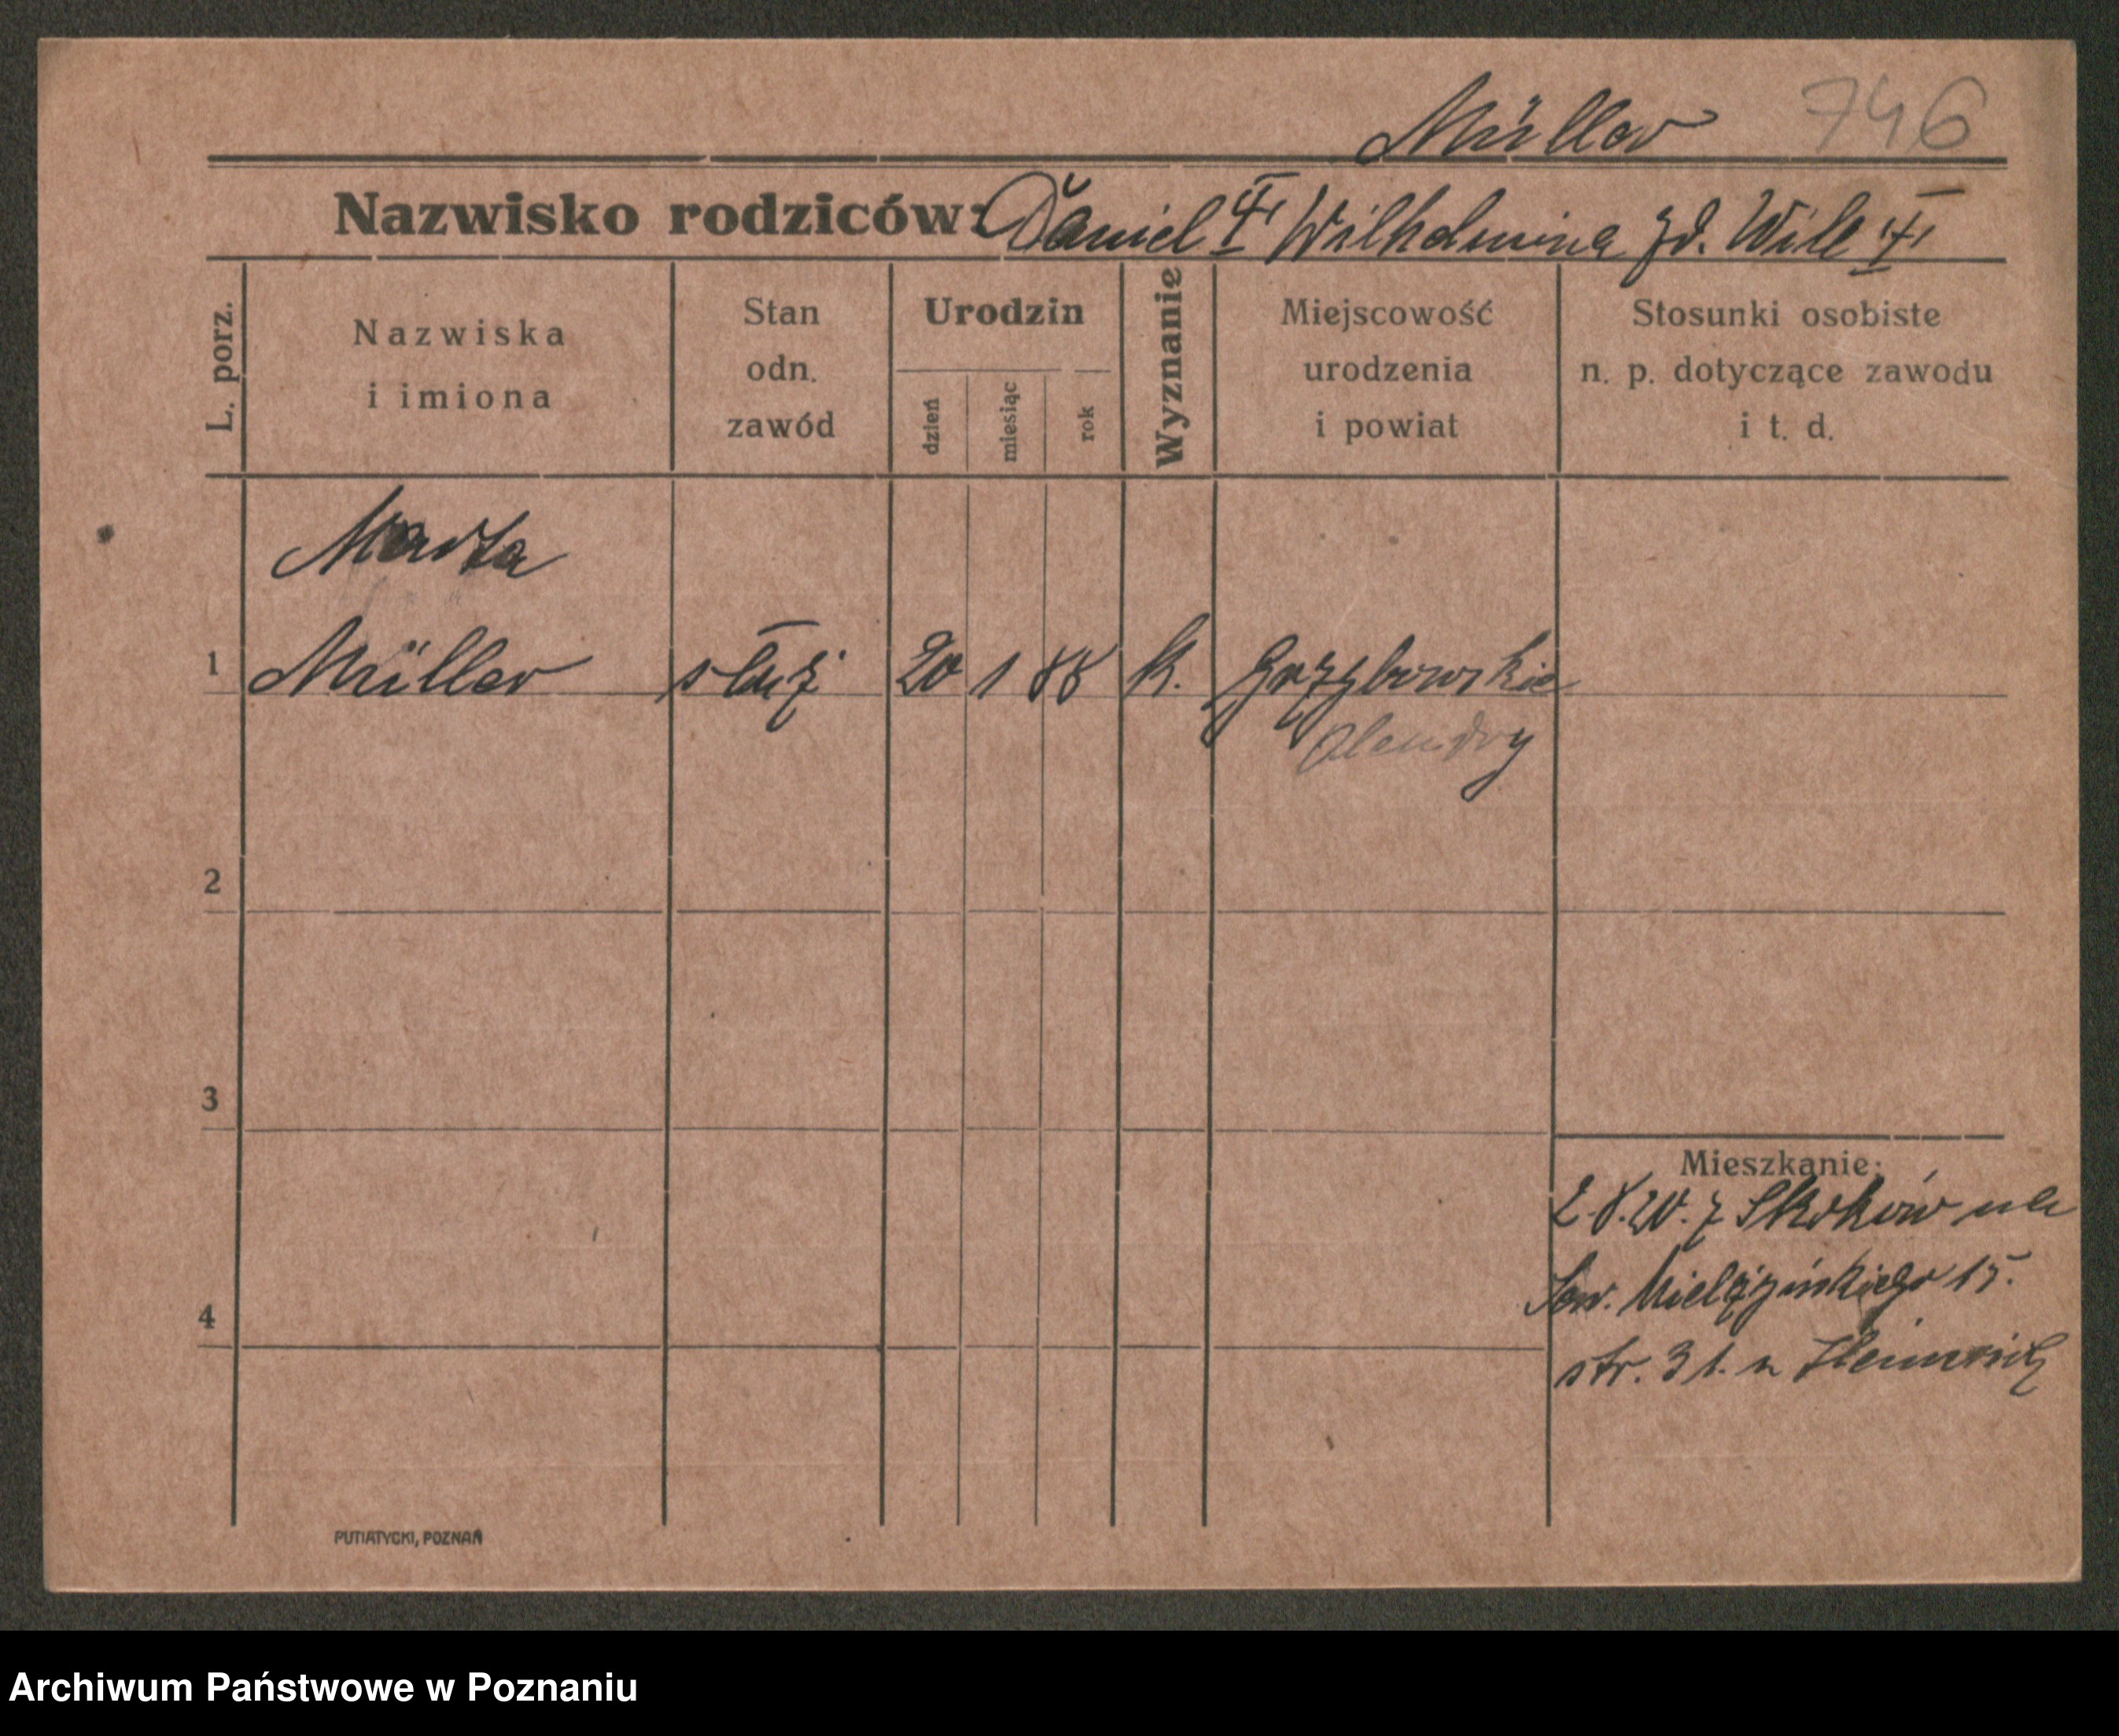 Müller 746
Nazwisko rodziców: Daniel Wilhelmina zd. Wilk
L. porz.
Nazwiska
i imiona
Stan
odn.
zawód
Urodzin
dzień
miesiąc
rok
Wyznanie
Miejscowość
urodzenia
i powiat
Stosunki osobiste
n. p. dotyczące zawodu
i t. d.
Marta
1 Müller służ 20 1 88 k. Grzybowskie
Olendry
2
3
4
Mieszkanie:
2.8.20. z Skoków na
Sew. Mielżyńskiego 15.
str. 31. u
PUTIATYCKI, POZNAŃ
Archiwum Państwowe w Poznaniu